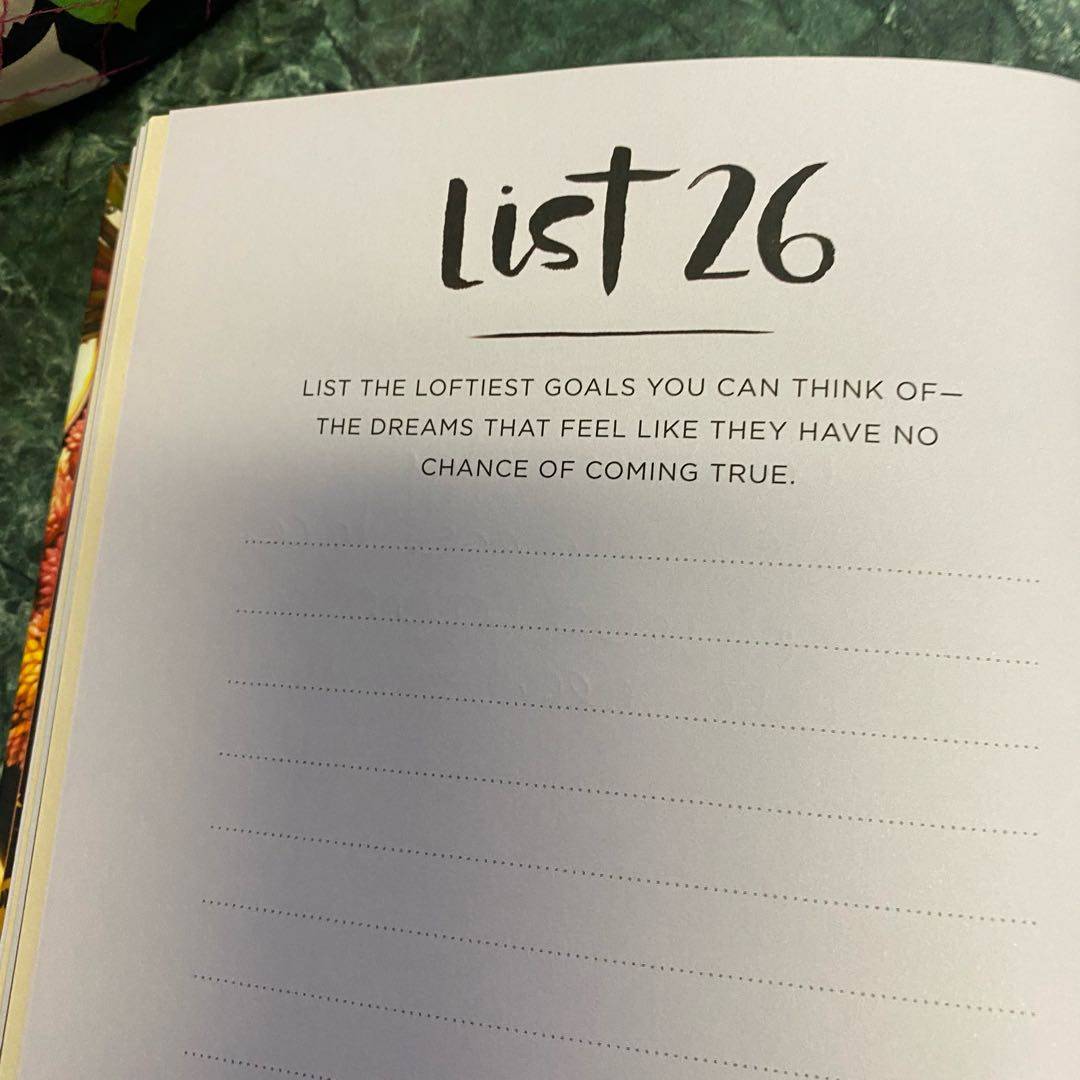 List 26
LIST THE LOFTIEST GOALS YOU CAN THINK OF—
THE DREAMS THAT FEEL LIKE THEY HAVE NO
CHANCE OF COMING TRUE.